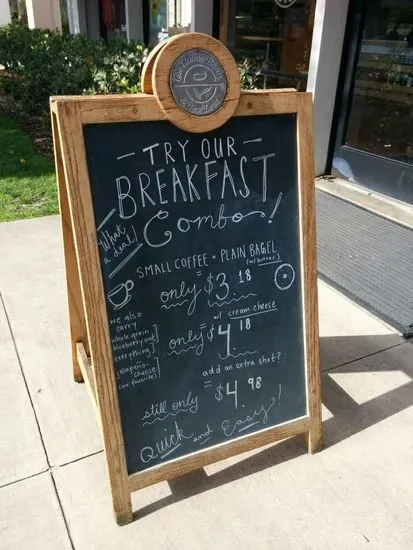 — TRY OUR —
BREAKFAST
Combo!
What
a deal!
SMALL COFFEE + PLAIN BAGEL
(w/ butter)
= only $3.18
w/ cream cheese
only = $4.18
add an extra shot?
= still only $4.98
Quick and Easy!
we also
carry:
whole grain
blueberry
everything!
jalapeño-
cheese
(our favorite)